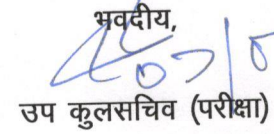 भवदीय,
उप कुलसचिव (परीक्षा)